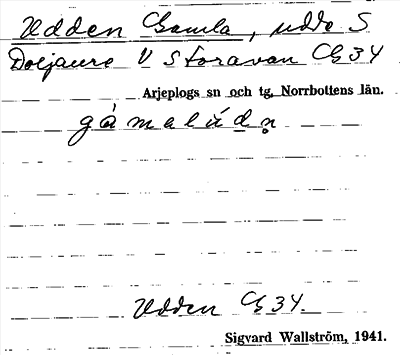 Udden Gamla, udde S
Dorjaure V Storavan Cg 34
Arjeplogs sn och tg, Norrbottens län.
gåmalúdn̥
Udden Cg 34.
Sigvard Wallström, 1941.